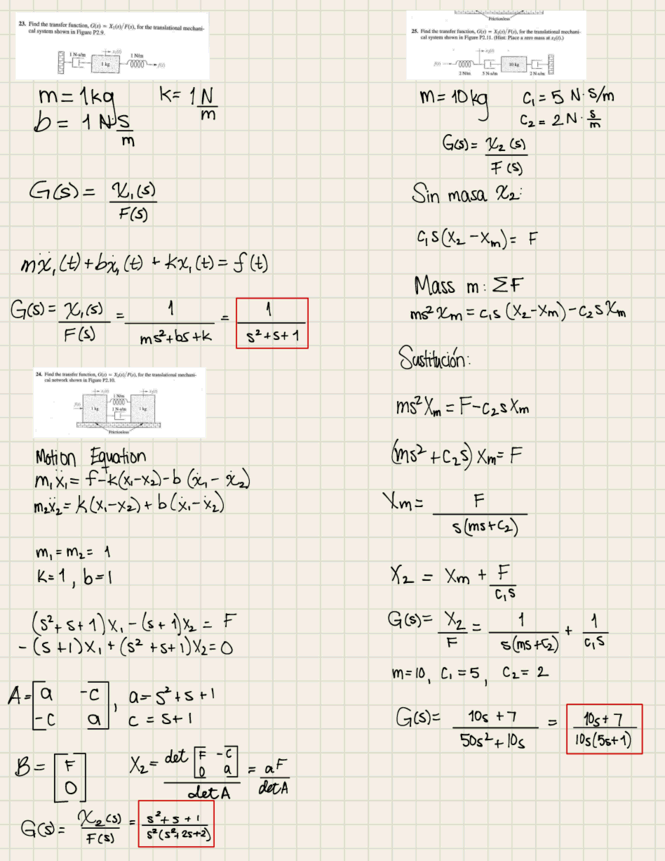 23. Find the transfer function, G(s) = X₁(s)/F(s), for the translational mechanical system shown in Figure P2.9.
1 N-s/m
x₁(t)
1 N/m
1 kg
f(t)
m = 1kg    k = 1 N/m
b = 1 N S/m
G(s) = X₁(s)/F(s)
mẍ₁(t) + bẋ₁(t) + kx₁(t) = f(t)
G(s) = X₁(s)/F(s) = 1/(ms² + bs + k) = 1/(s² + s + 1)
24. Find the transfer function, G(s) = X₂(s)/F(s), for the translational mechanical network shown in Figure P2.10.
x₁(t)
x₂(t)
1 N/m
f(t)
1 kg
1 N-s/m
1 kg
Frictionless
Motion Equation
m₁ẍ₁ = f - k(x₁ - x₂) - b(ẋ₁ - ẋ₂)
m₂ẍ₂ = k(x₁ - x₂) + b(ẋ₁ - ẋ₂)
m₁ = m₂ = 1
k = 1, b = 1
(s² + s + 1)X₁ - (s + 1)X₂ = F
-(s + 1)X₁ + (s² + s + 1)X₂ = 0
A = [a -c; -c a], a = s² + s + 1
c = s + 1
B = [F; 0]    X₂ = det[F -c; 0 a]/det A = aF/det A
G(s) = X₂(s)/F(s) = (s² + s + 1)/(s²(s² + 2s + 2))
Frictionless
25. Find the transfer function, G(s) = X₂(s)/F(s), for the translational mechanical system shown in Figure P2.11. (Hint: Place a zero mass at x₂(t).)
x₂(t)
f(t)
10 kg
2 N/m
5 N-s/m
2 N-s/m
m = 10 kg    C₁ = 5 N·s/m
C₂ = 2 N·s/m
G(s) = X₂(s)/F(s)
Sin masa X₂:
C₁s(X₂ - Xm) = F
Mass m: ΣF
ms²Xm = C₁s(X₂ - Xm) - C₂sXm
Sustitución:
ms²Xm = F - C₂sXm
(ms² + C₂s)Xm = F
Xm = F/(s(ms + C₂))
X₂ = Xm + F/(C₁s)
G(s) = X₂/F = 1/(s(ms + C₂)) + 1/(C₁s)
m = 10, C₁ = 5, C₂ = 2
G(s) = (10s + 7)/(50s² + 10s) = (10s + 7)/(10s(5s + 1))